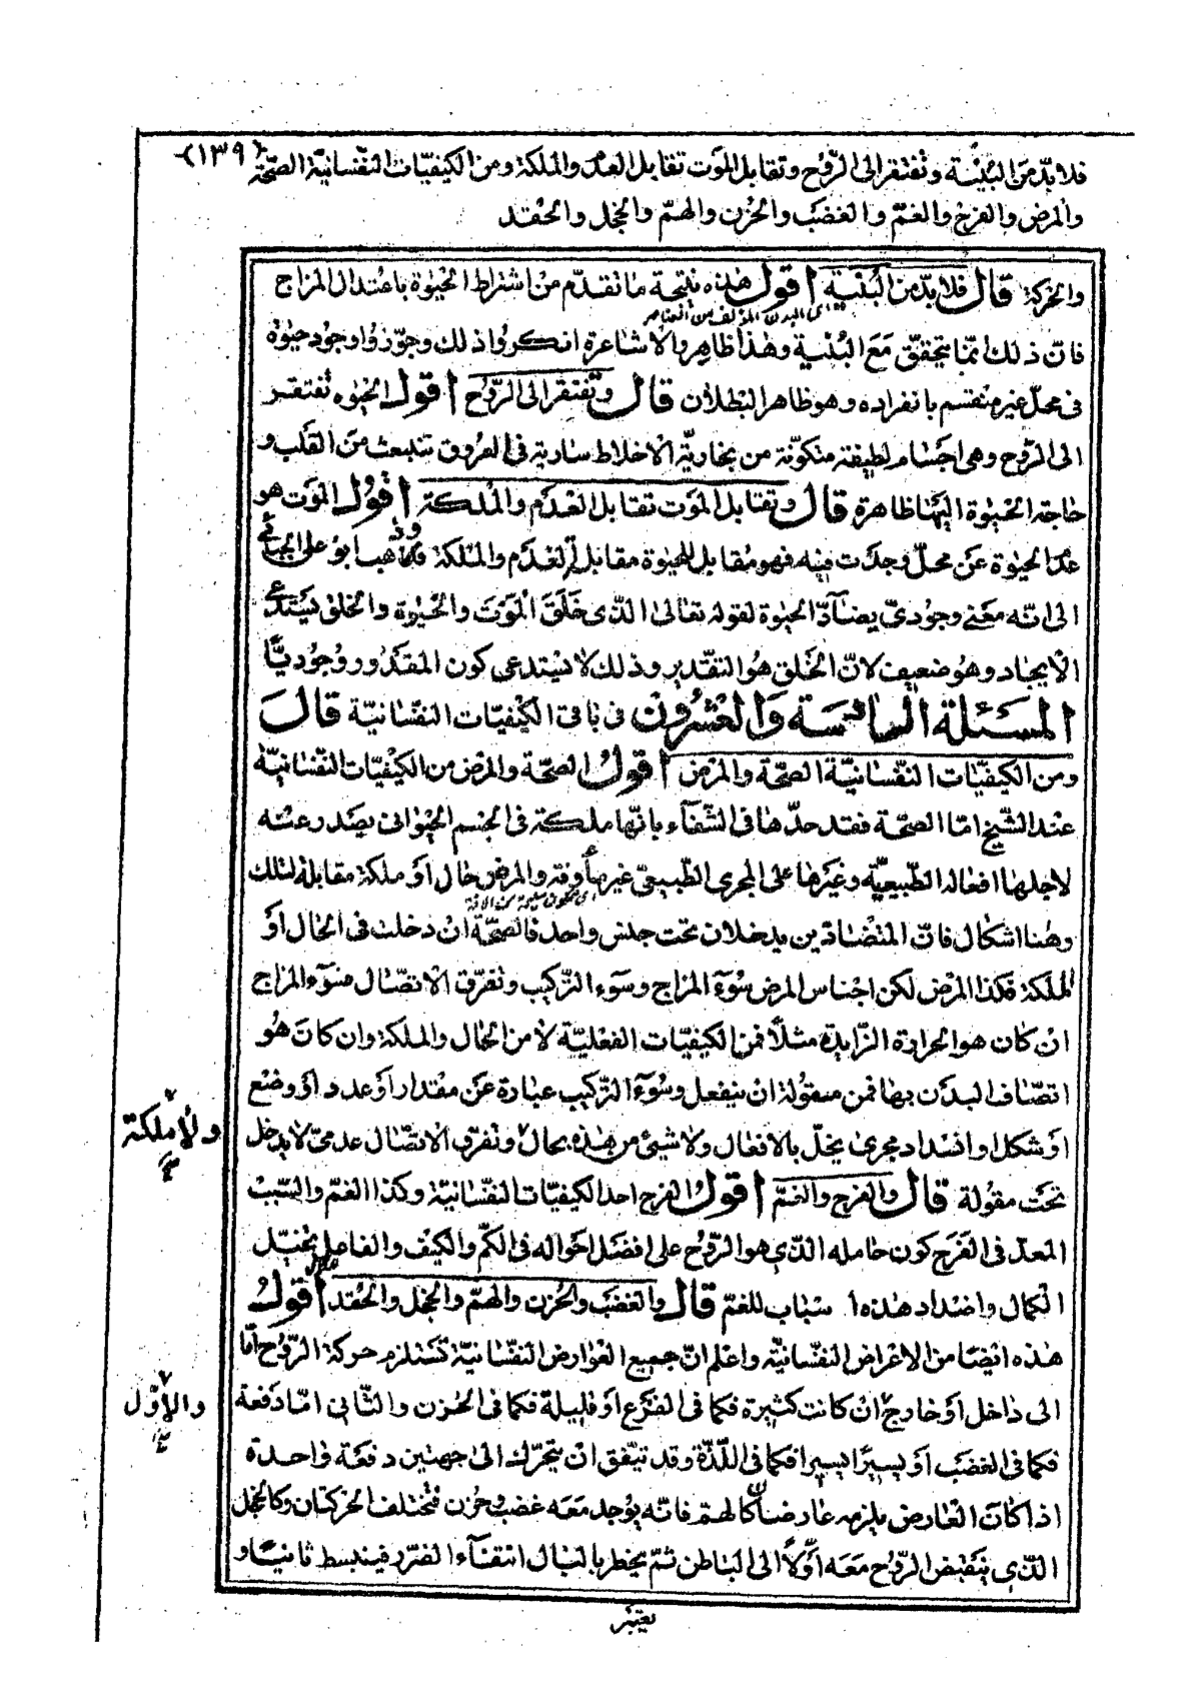 (١٣٩)
فلا بدّ من البُنية وتفتقر الى الرّوح وتقابل الموت تقابل العدم والملكة ومن الكيفيّات النفسانيّة الصحّة
والمرض والفرح والغمّ والغضب والحزن والهمّ والخجل والحقد
والحركة قال فلا بدّ من البُنية اقول هذه نتيجة ما تقدّم من اشتراط الحيٰوة باعتدال المزاج
اى البدن المؤلف من العناصر
فانّ ذلك انّما يتحقق مع البُنية وهذا ظاهر والاشاعرة انكروا ذلك وجوّزوا وجود حيٰوة
فى محلّ غير منقسم بانفراده وهو ظاهر البطلان قال وتفتقر الى الرّوح اقول الحيٰوة تفتقر
الى الرّوح وهى اجسام لطيفة متكوّنة من بخاريّة الاخلاط سارية فى العروق تنبعث من القلب و
حاجة الحيٰوة اليها ظاهرة قال وتقابل الموت تقابل العدم والملكة اقول الموت هو
عدم الحيٰوة عن محلّ وجدت فيه فهو مقابل للحيٰوة مقابلة العدم والملكة وقد ذهب ابو على الجبائى
الى انّه معنى وجودىّ يضادّ الحيٰوة لقوله تعالى الذى خلق الموت والحيٰوة والخلق يستدعى
الايجاد وهو ضعيف لانّ الخلق هو التقدير وذلك لا يستدعى كون المقدور وجوديّا
المسئلة السادسة والعشرون فى باقى الكيفيّات النفسانيّة قال
ومن الكيفيّات النفسانيّة الصحّة والمرض اقول الصحّة والمرض من الكيفيّات النفسانيّة
عند الشيخ امّا الصحّة فقد حدّها فى الشفآء بانّها ملكة فى الجسم الحيوانى يصدر عنه
لاجلها افعاله الطّبيعيّة وغيرها على المجرى الطّبيعى غير مأوفة والمرض حال او ملكة مقابلة لتلك
وهنا اشكال فانّ المتضادّين يدخلان تحت جنس واحد فالصحّة ان دخلت فى الحال او
الملكة فكذا المرض لكن اجناس المرض سوء المزاج وسوء التركيب وتفرّق الاتّصال فسوء المزاج
ان كان هو الحرارة الزّايدة مثلاً فمن الكيفيّات الفعليّة لا من الحال والملكة وان كان هو
اتصاف البدن بها فمن مقولة ان ينفعل وسوء التركيب عبارة عن مقدار او عدد او وضع
او شكل او انسداد مجرى يخلّ بالافعال ولا شىء من هذه بحال وتفرّق الاتّصال عدمىّ لا يدخل
ولا ملكة
تحت مقولة قال والفرح والغمّ اقول الفرح احد الكيفيّات النفسانيّة وكذا الغمّ والسّبب
المعدّ فى الفرح كون حامله الذى هو الرّوح على افضل احواله فى الكمّ والكيف والفاعل تخيّل
الكمال واضداد هذه اسباب للغمّ قال والغضب والحزن والهمّ والخجل والحقد اقول
هذه ايضا من الاعراض النفسانيّة واعلم انّ جميع العوارض النفسانيّة تستلزم حركة الرّوح امّا
الى داخل او خارج ان كانت كثيرة فكما فى الفزع او قليلة فكما فى الحزن والثانى امّا دفعة
والاوّل
فكما فى الغضب او يسيرًا يسيرا فكما فى اللذّة وقد يتّفق ان يتحرّك الى جهتين دفعة واحدة
اذا كان العارض يلزمه عارضان كالهمّ فانّه يوجد معه غضب وحزن فتختلف الحركتان وكالخجل
الذى ينقبض الرّوح معه اوّلاً الى الباطن ثمّ يخطر بالبال انتفآء الضرر فينبسط ثانيًا و
يعتبر